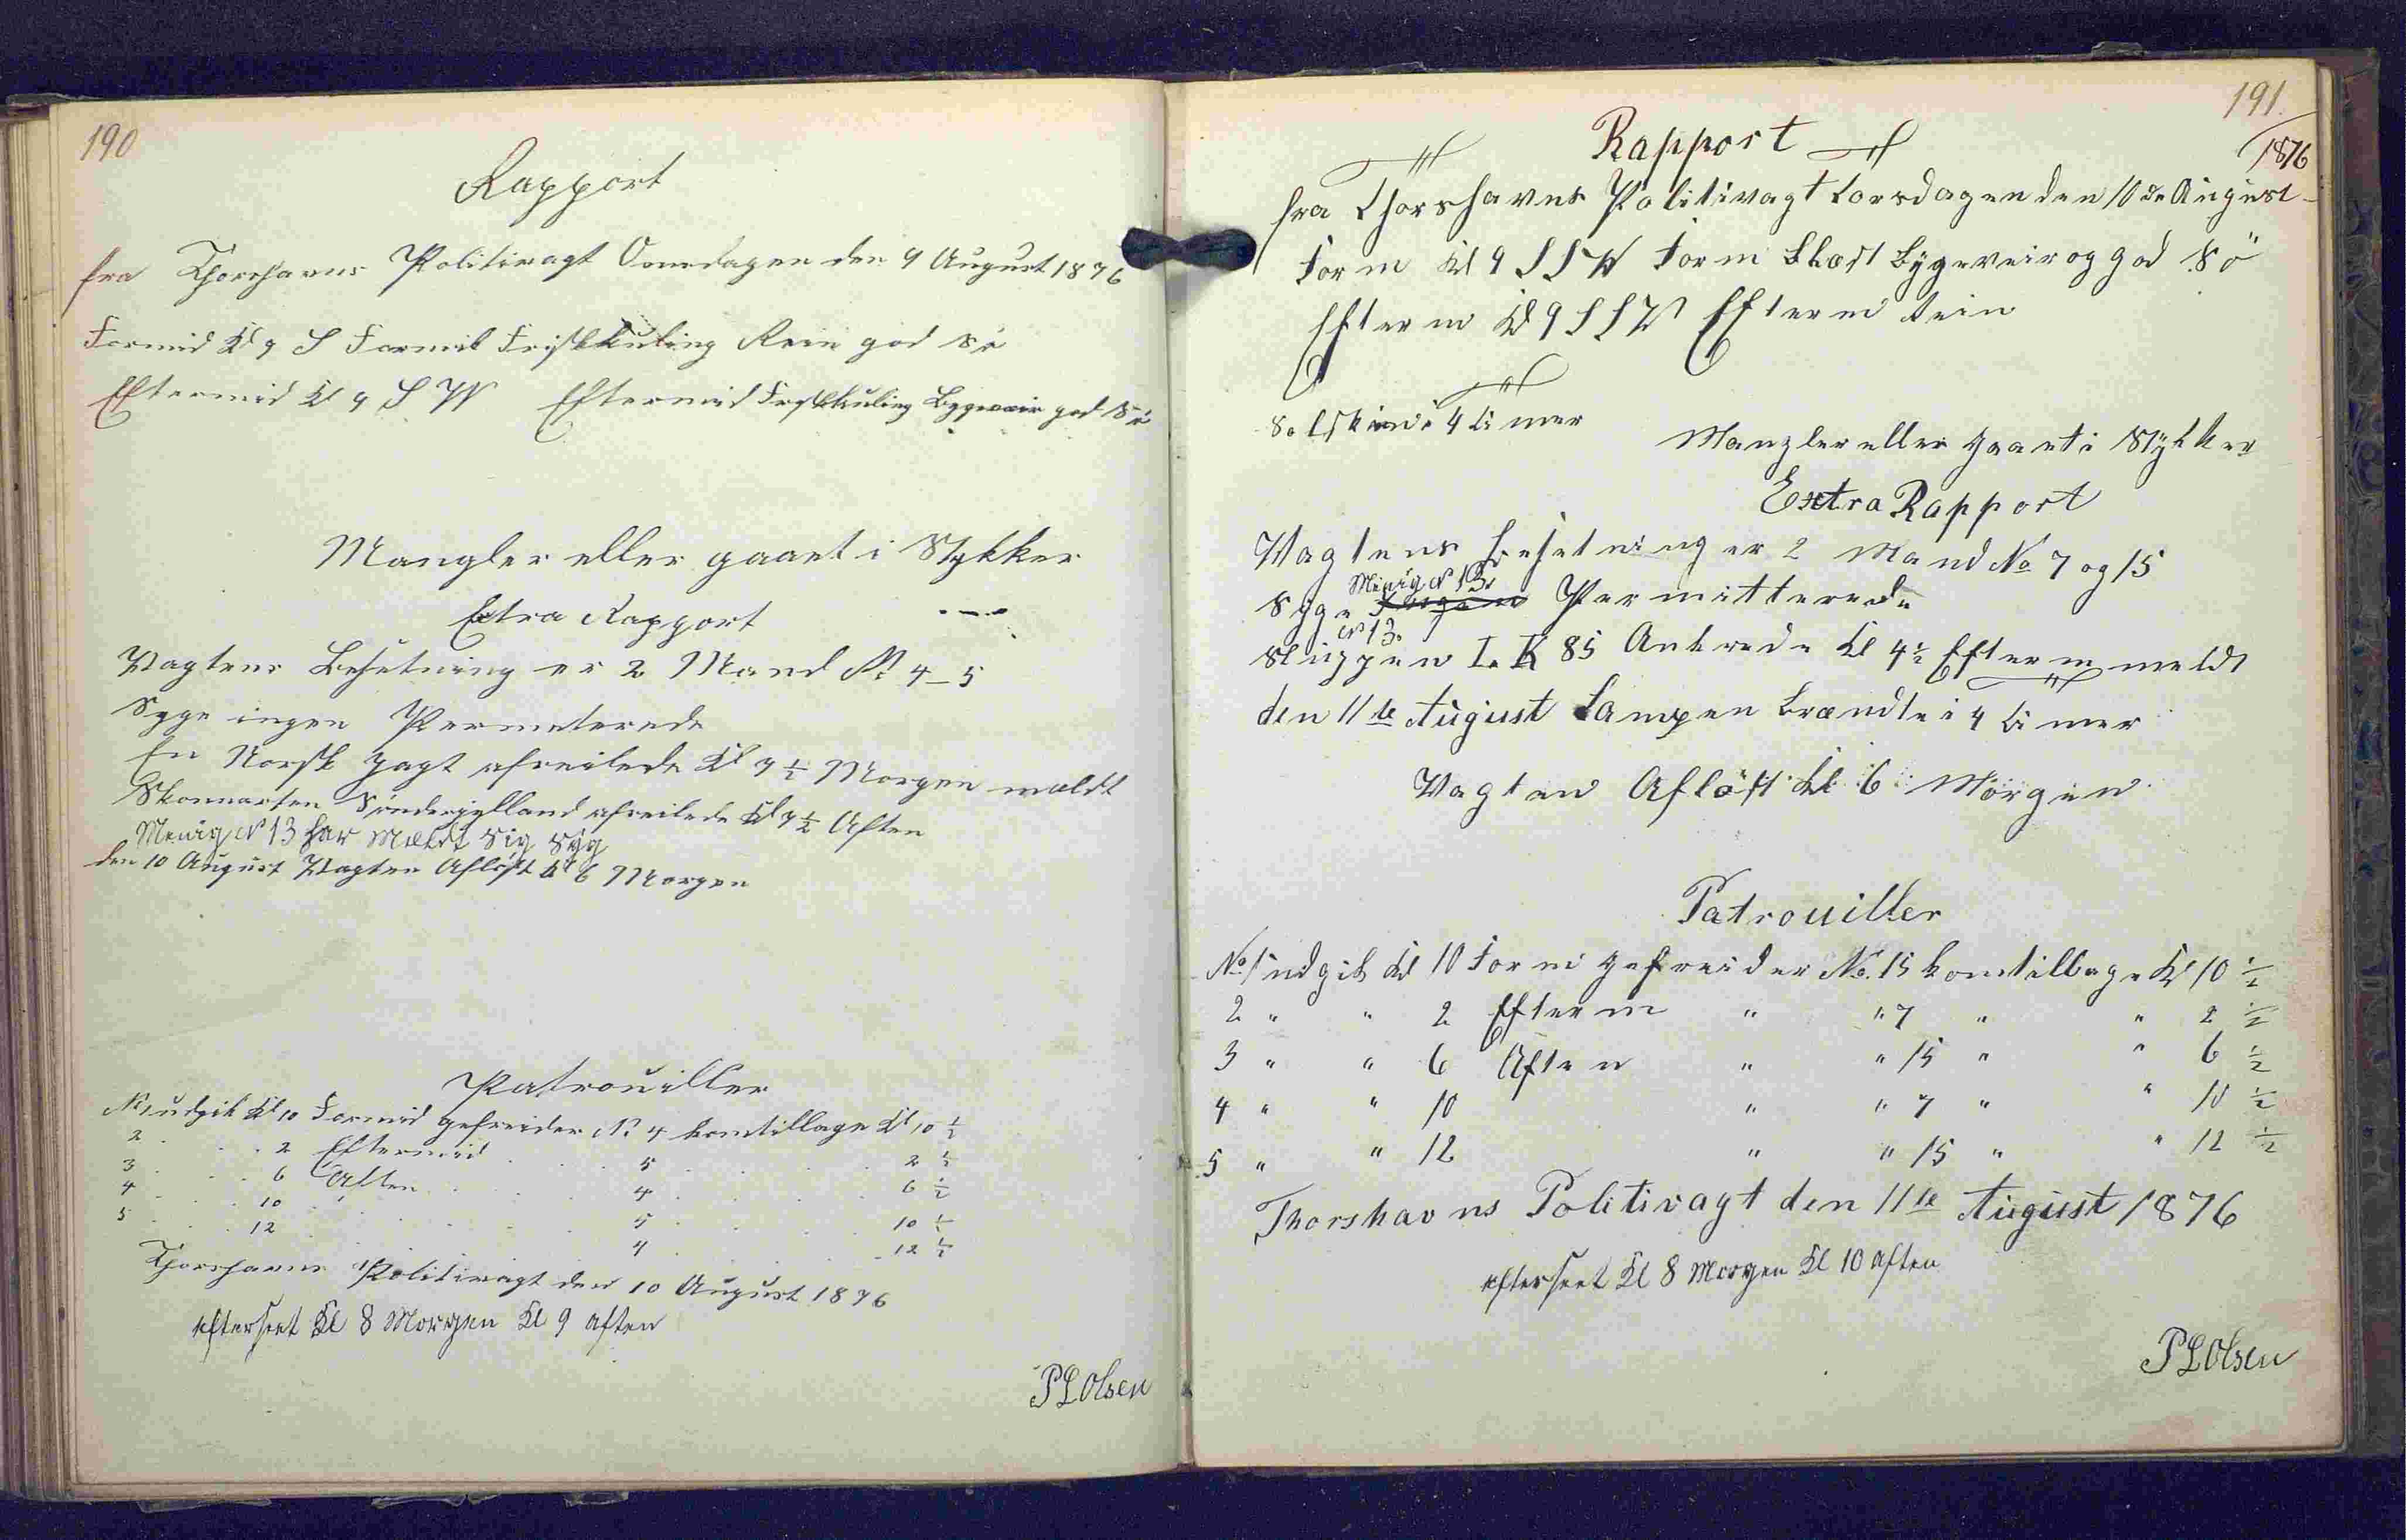 190
Rapport
fra Thorshavns Politivagt Onsdagen den 9 August 1876
Formid Kl 9 S Formid Friskkuling Rein god Sö
Eftermid Kl 9 S W Eftermid Friskkuling Bygeveir god Sö
Mangler eller gaaet i Stykker
Extra Rapport
Vagtens Besetning er 2 Mand No 4 - 5
Syge ingen Permeterede
En Norsk Jagt afreilede Kl 9 1/2 Morgen meldt
Skonnarten Sönderjylland afreilede Kl 9 1/2 Aften
Menig No 13 har Meldt Sig Syg
den 10 August Vagten Aflöst Kl 6 Morgen
Patrouiller
No 1 udgik Kl 10 Formid gefreider No 4 komtillage Kl 10 1/2
2 . . 2 Eftermid . . 5 . . 2 1/2
3 . . 6 Aften . . 4 . . 6 1/2
4 . . 10 . . 5 . . 10 1/2
5 . . 12 . . 4 . . 12 1/2
Thorshavns Politivagt den 10 August 1876
efterseet Kl 8 Morgen Kl 9 aften
P L Olsen
191
Rapport
1876
fra Thorshavns Politivagt Torsdagen den 10de August
Form Kl 9 S S W Form Bygeveir og god Sö
Efterm Kl 9 S S W Efterm
Solskin i 4 Timer
Mangler eller gaaet i Stykker
Extra Rapport
Vagtens Besetning er 2 Mand No 7 og 15
Menig No 13
Syge Ingen Permitterede
No 13.
Sluppen L. K 85 Ankrede Kl 4 1/2 Efterm meldt
den 11te August Lampen Brændte i 4 Timer
Vagten Aflöst Kl 6 Morgen
Patrouiller
No 1 udgik Kl 10 Form gefreider No. 15 komtilbage Kl 10 1/2
2 " " 2 Efterm " " 7 " " 2 1/2
3 " " 6 Aften " " 15 " " 6 1/2
4 " " 10 " " 7 " " 10 1/2
5 " " 12 " " 15 " " 12 1/2
Thorshavns Politivagt den 11te August 1876
efterseet Kl 8 Morgen Kl 10 aften
P L Olsen